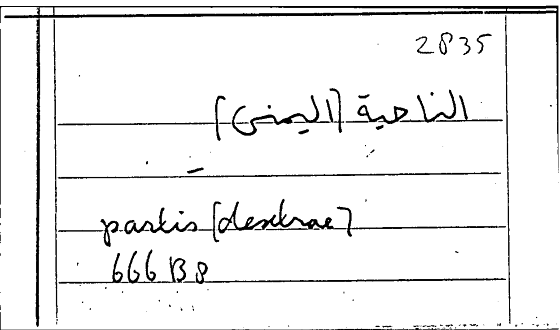 2835
الناحية [اليمنى]
partis [dextrae]
666 B8